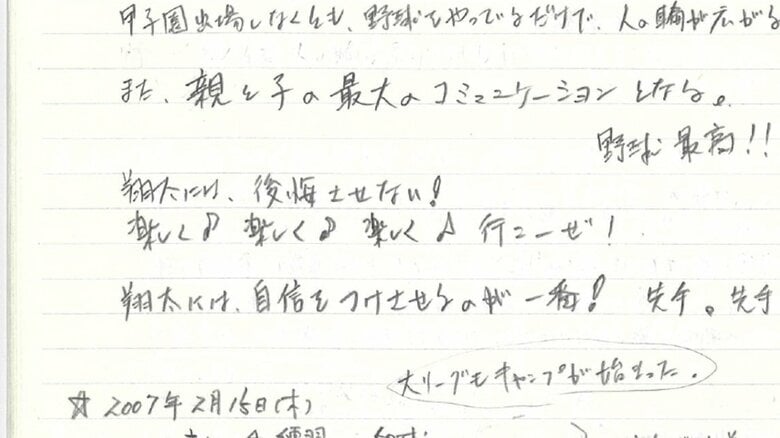 甲子園出場しなくとも、野球をやってるだけで、人の輪が広がる
また、親と子の最大のコミュニケーションとなる。
野球 最高!!
翔太には、後悔させない!
楽しく♪ 楽しく♪ 楽しく♪ 行こーぜ!
翔太には、自信をつけさせるのが一番! 先手。先手
大リーグもキャンプが始まった。
☆ 2007年2月15日(木)
練習